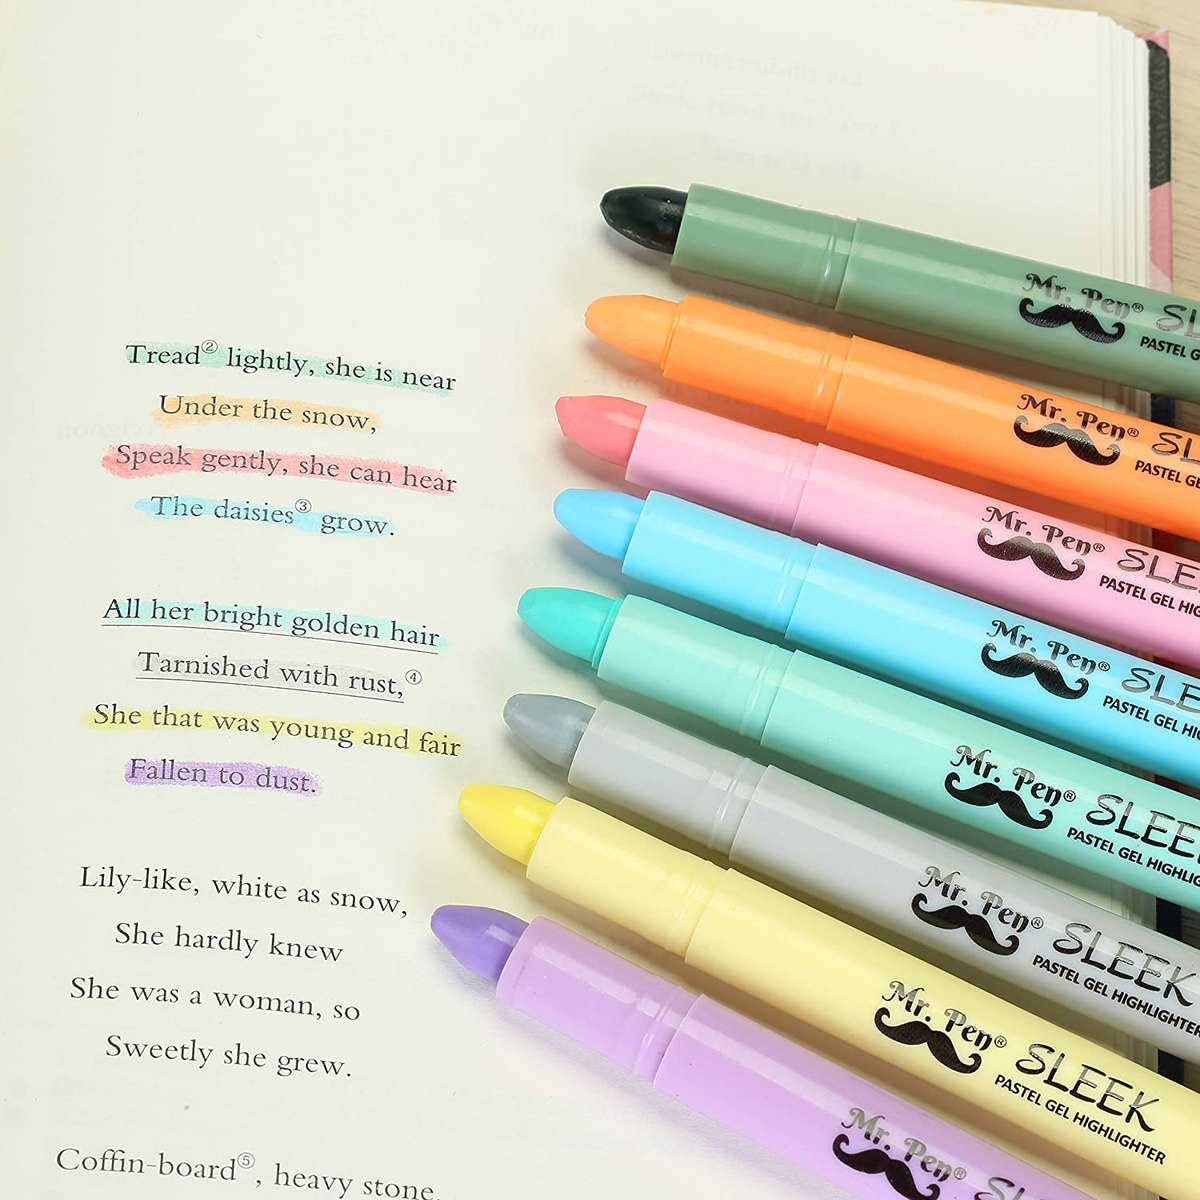 Tread② lightly, she is near
Under the snow,
Speak gently, she can hear
The daisies③ grow.
All her bright golden hair
Tarnished with rust,④
She that was young and fair
Fallen to dust.
Lily-like, white as snow,
She hardly knew
She was a woman, so
Sweetly she grew.
Coffin-board⑤, heavy stone,
Mr. Pen® SL
PASTEL G
Mr. Pen® SL
PASTEL GE
Mr. Pen® SLE
PASTEL GEL HIG
Mr. Pen® SLE
PASTEL GEL HIG
Mr. Pen® SLEE
PASTEL GEL HIGHLIG
Mr. Pen® SLEEK
PASTEL GEL HIGHLIGHTER
Mr. Pen® SLEEK
PASTEL GEL HIGHLIGHTER
Mr. Pen® SLE